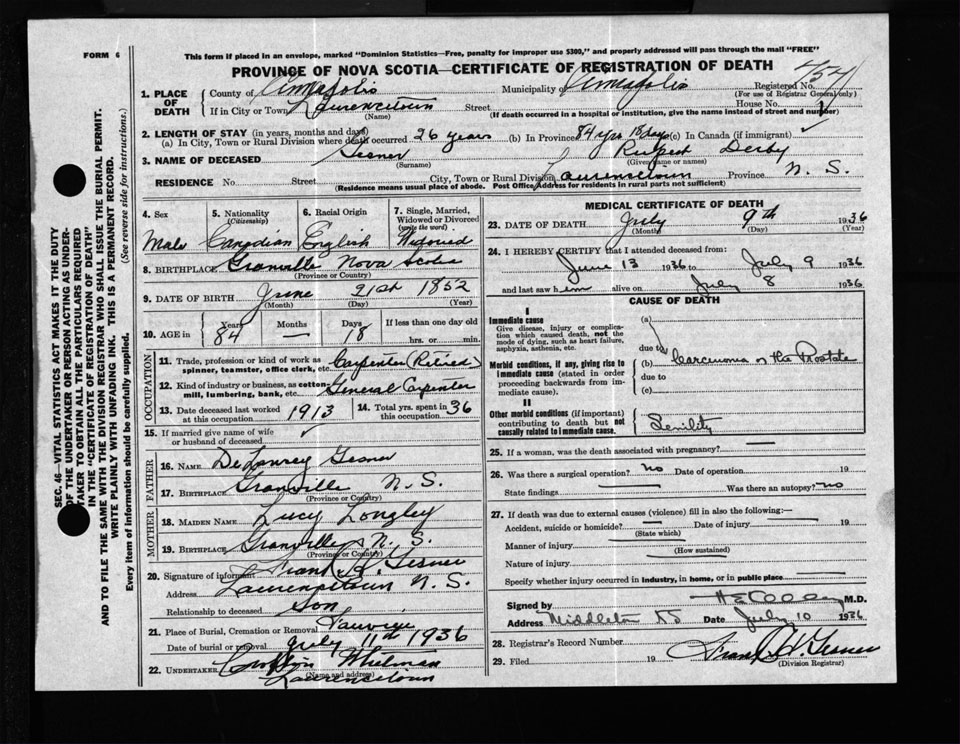 FORM 6
This form if placed in an envelope, marked "Dominion Statistics—Free, penalty for improper use $300," and properly addressed will pass through the mail "FREE"
PROVINCE OF NOVA SCOTIA—CERTIFICATE OF REGISTRATION OF DEATH
1. PLACE OF DEATH
County of Annapolis Municipality of Annapolis Registered No. 454
(For use of Registrar General only)
If in City or Town Laurencetown Street House No.
(Name) (If death occurred in a hospital or institution, give the name instead of street and number)
2. LENGTH OF STAY (in years, months and days)
(a) In City, Town or Rural Division where death occurred 26 years (b) In Province 84 yrs 18 days (c) In Canada (if immigrant)
3. NAME OF DECEASED Gesner Rupert Derby
(Surname) (Given name or names)
RESIDENCE No. Street City, Town or Rural Division Laurencetown Province N. S.
(Residence means usual place of abode. Post Office Address for residents in rural parts not sufficient)
SEC. 46—VITAL STATISTICS ACT MAKES IT THE DUTY
OF THE UNDERTAKER OR PERSON ACTING AS UNDER-
TAKER TO OBTAIN ALL THE PARTICULARS REQUIRED
IN THE "CERTIFICATE OF REGISTRATION OF DEATH"
AND TO FILE THE SAME WITH THE DIVISION REGISTRAR WHO SHALL ISSUE THE BURIAL PERMIT.
WRITE PLAINLY WITH UNFADING INK. THIS IS A PERMANENT RECORD.
Every item of information should be carefully supplied. (See reverse side for instructions.)
4. Sex 5. Nationality (Citizenship) 6. Racial Origin 7. Single, Married, Widowed or Divorced (write the word)
Male Canadian English Widowed
8. BIRTHPLACE Granville Nova Scotia
(Province or Country)
9. DATE OF BIRTH June 21st 1852
(Month) (Day) (Year)
10. AGE in Years Months Days If less than one day old
84 — 18 hrs. or min.
OCCUPATION
11. Trade, profession or kind of work as spinner, teamster, office clerk, etc. Carpenter (Retired)
12. Kind of industry or business, as cotton mill, lumbering, bank, etc. General Carpenter
13. Date deceased last worked at this occupation 1913 14. Total yrs. spent in this occupation 36
15. If married give name of wife or husband of deceased
FATHER
16. NAME DeLancey Gesner
17. BIRTHPLACE Granville N. S.
(Province or Country)
MOTHER
18. MAIDEN NAME Lucy Longley
19. BIRTHPLACE Granville N. S.
(Province or Country)
20. Signature of informant Frank H. Gesner
Address Laurencetown N. S.
Relationship to deceased Son
21. Place of Burial, Cremation or Removal
Date of burial or removal July 11th 1936
22. UNDERTAKER Whitman
(Name and address)
Laurencetown
MEDICAL CERTIFICATE OF DEATH
23. DATE OF DEATH July 9th 1936
(Month) (Day) (Year)
24. I HEREBY CERTIFY that I attended deceased from:
June 13 1936 to July 9 1936
and last saw him alive on July 8 1936
CAUSE OF DEATH
I
Immediate cause
Give disease, injury or complication which caused death, not the mode of dying, such as heart failure, asphyxia, asthenia, etc.
(a)
due to
Morbid conditions, if any, giving rise to immediate cause (stated in order proceeding backwards from immediate cause).
(b) Carcinoma of the Prostate
due to
(c)
II
Other morbid conditions (if important) contributing to death but not causally related to immediate cause.
Senility
25. If a woman, was the death associated with pregnancy? —
26. Was there a surgical operation? no Date of operation 19
State findings — Was there an autopsy? no
27. If death was due to external causes (violence) fill in also the following:—
Accident, suicide or homicide? — Date of injury — 19
(State which)
Manner of injury
(How sustained)
Nature of injury
Specify whether injury occurred in industry, in home, or in public place —
Signed by M.D.
Address Middleton NS Date July 10 1936
28. Registrar's Record Number
29. Filed 19 Frank H. Gesner
(Division Registrar)